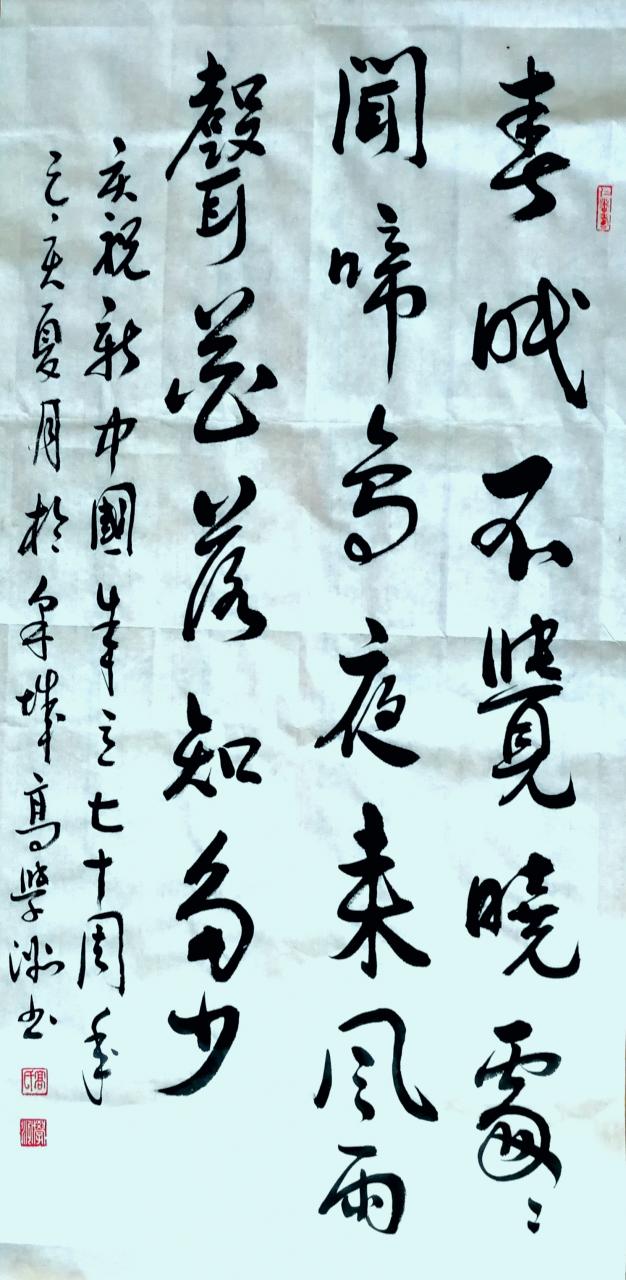 春眠不覺曉處〻
聞啼鳥夜来風雨
聲花落知多少
庆祝新中國成立七十周年
己亥夏月於泉城高學书
高氏